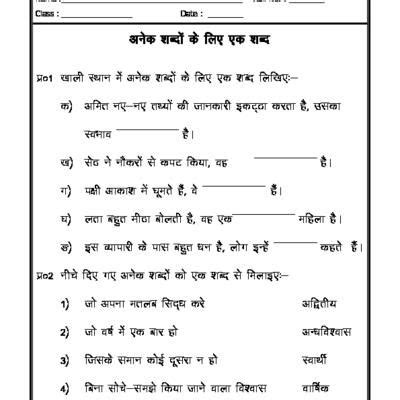 Class : Date :
अनेक शब्दों के लिए एक शब्द
प्र०1 खाली स्थान में अनेक शब्दों के लिए एक शब्द लिखिए:–
क) अमित नए–नए तथ्यों की जानकारी इकट्ठा करता है, उसका
स्वभाव ____________ है।
ख) सेठ ने नौकरों से कपट किया, वह ____________ है।
ग) पक्षी आकाश में घूमते हैं, वे ____________ हैं।
घ) लता बहुत मीठा बोलती है, वह एक ____________ महिला है।
ङ) इस व्यापारी के पास बहुत धन है, लोग इन्हें ________ कहते हैं।
प्र०2 नीचे दिए गए अनेक शब्दों को एक शब्द से मिलाइए:–
1) जो अपना मतलब सिद्ध करे अद्वितीय
2) जो वर्ष में एक बार हो अन्धविश्वास
3) जिसके समान कोई दूसरा न हो स्वार्थी
4) बिना सोचे–समझे किया जाने वाला विश्वास वार्षिक